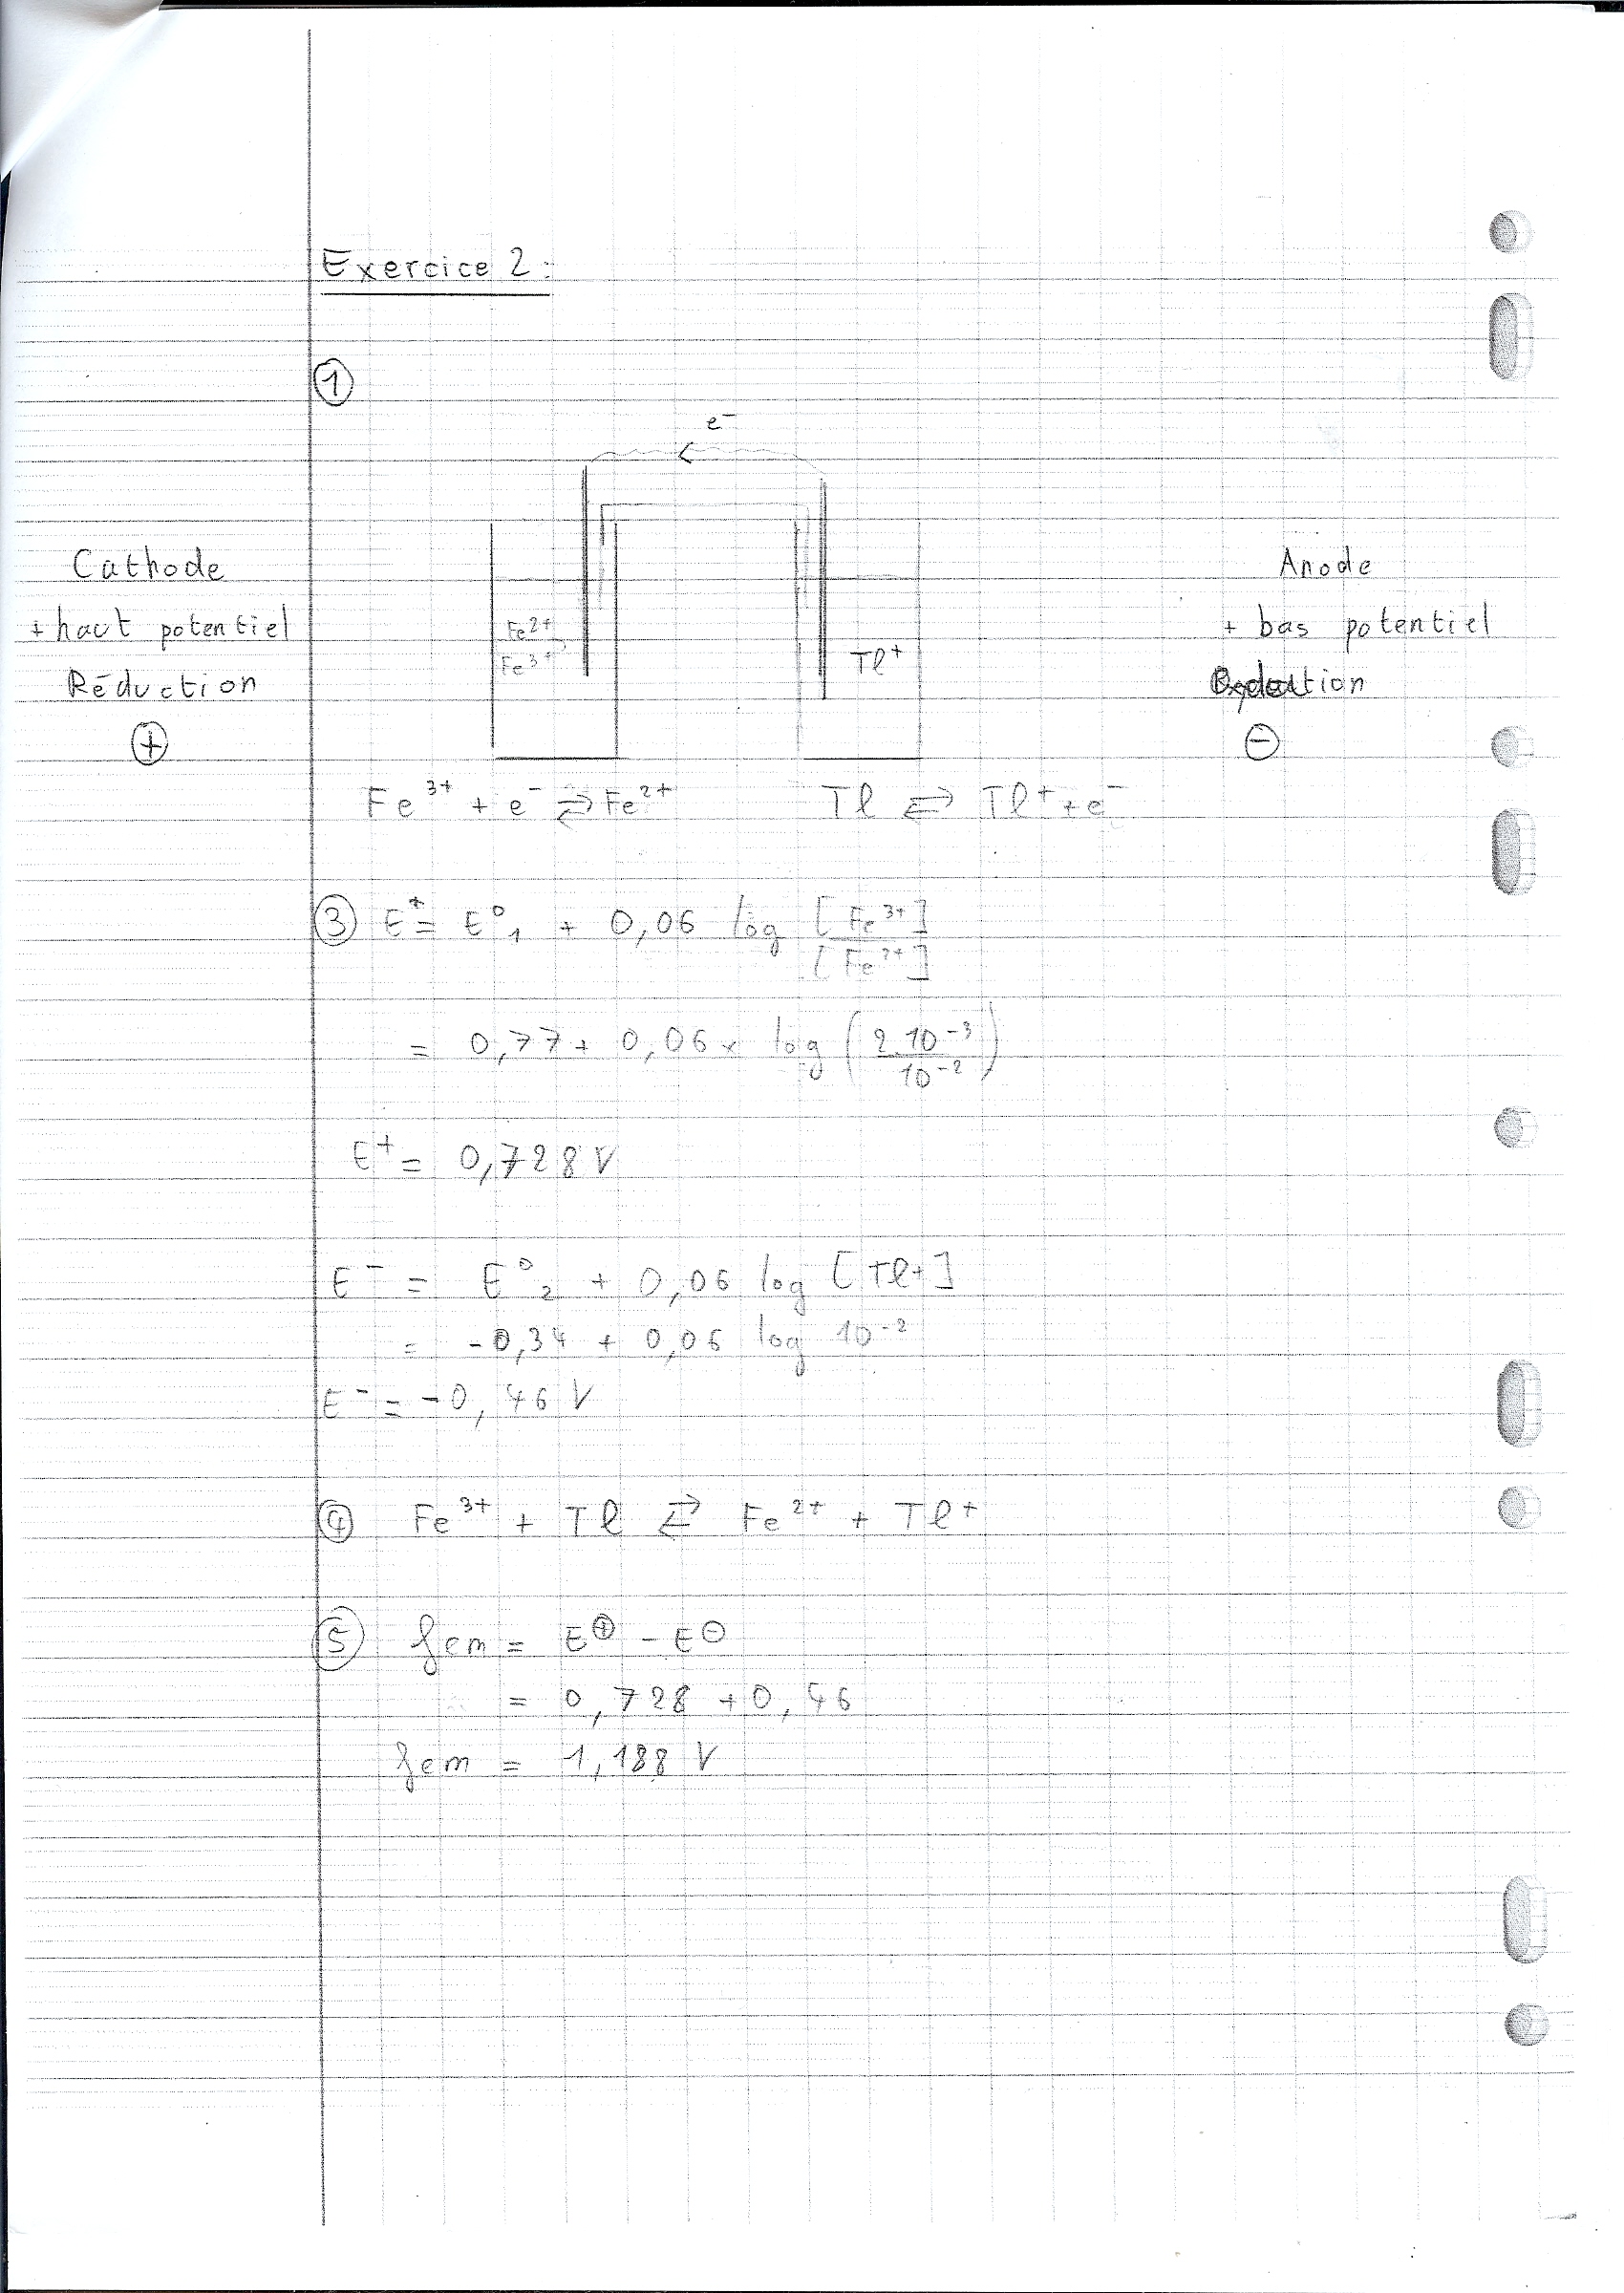 Exercice 2:
①
e⁻
Cathode
+ haut potentiel
Réduction
⊕
Fe²⁺
Fe³⁺
Tl⁺
Anode
+ bas potentiel
⊖
Fe³⁺ + e⁻ ⇄ Fe²⁺
Tl ⇄ Tl⁺ + e⁻
③ E⁺ = E°₁ + 0,06 log [Fe³⁺]
[Fe²⁺]
= 0,77 + 0,06 × log (2.10⁻³
10⁻²)
E⁺ = 0,728 V
E⁻ = E°₂ + 0,06 log [Tl+]
= -0,34 + 0,06 log 10⁻²
E⁻ = -0,46 V
④ Fe³⁺ + Tl ⇄ Fe²⁺ + Tl⁺
⑤ fem = E⊕ - E⊖
= 0,728 + 0,46
fem = 1,188 V